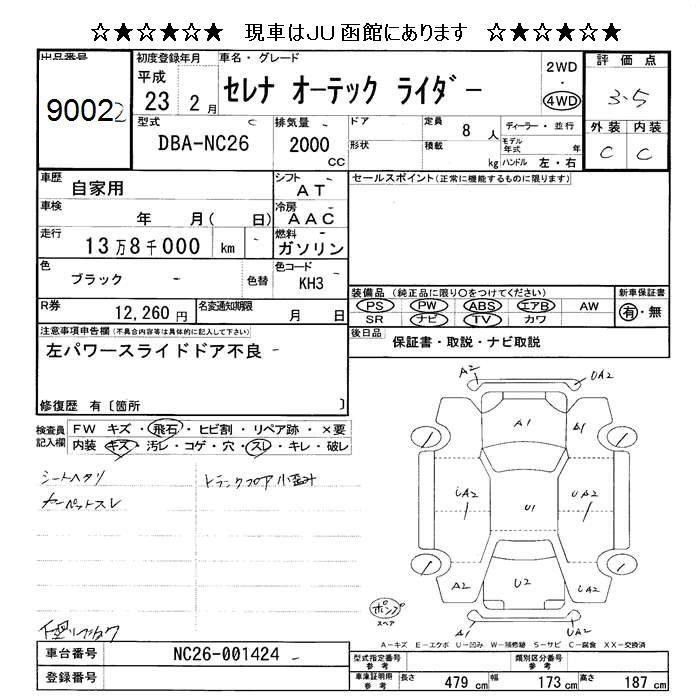 ☆★☆★☆★☆ 現車はJU函館にあります ☆★☆★☆★☆
出品番号 初度登録年月 車名・グレード 2WD・4WD 評価点
90022 平成23 2月 セレナ オーテック ライダー 3.5
外装 内装
C C
型式 C 排気量 - ドア 定員 8人 ディーラー・並行
DBA-NC26 2000CC 形状 積載 kg モデル年式 年 ハンドル 左・右
車歴 自家用 シフト - AT セールスポイント(正常に機能するものに限ります)
車検 年 月( 日) 冷房 - AAC
走行 13万8千000 km - 燃料 - ガソリン
色 ブラック - 色替 色コード KH3
装備品 (純正品に限り○をつけてください) 新車保証書
PS PW ABS エアB AW 有・無
SR ナビ TV カワ
R券 12,260円 名変通知期限 月 日
後日品 保証書・取説・ナビ取説
注意事項申告欄(不具合内容等は具体的に記入して下さい)
左パワースライドドア不良 -
修復歴 有〔箇所 〕
検査員記入欄 FW キズ・飛石・ヒビ割・リペア跡・×要
内装 キズ・汚レ・コゲ・穴・スレ・キレ・破レ
シートヘタリ トランクフロア小歪み
カーペットスレ
A2 UA2
A1 A1
UA2 U1 UA2
A2 U2 UA2
A1 UA2
ポンプ
スペア
A－キズ E－エクボ U－凹み W－補修跡 S－サビ C－腐食 XX－交換済
車台番号 NC26-001424 - 型式指定番号 参考 類別区分番号 参考
登録番号 車庫証明用 参考 長さ 479cm 幅 173cm 高さ 187cm